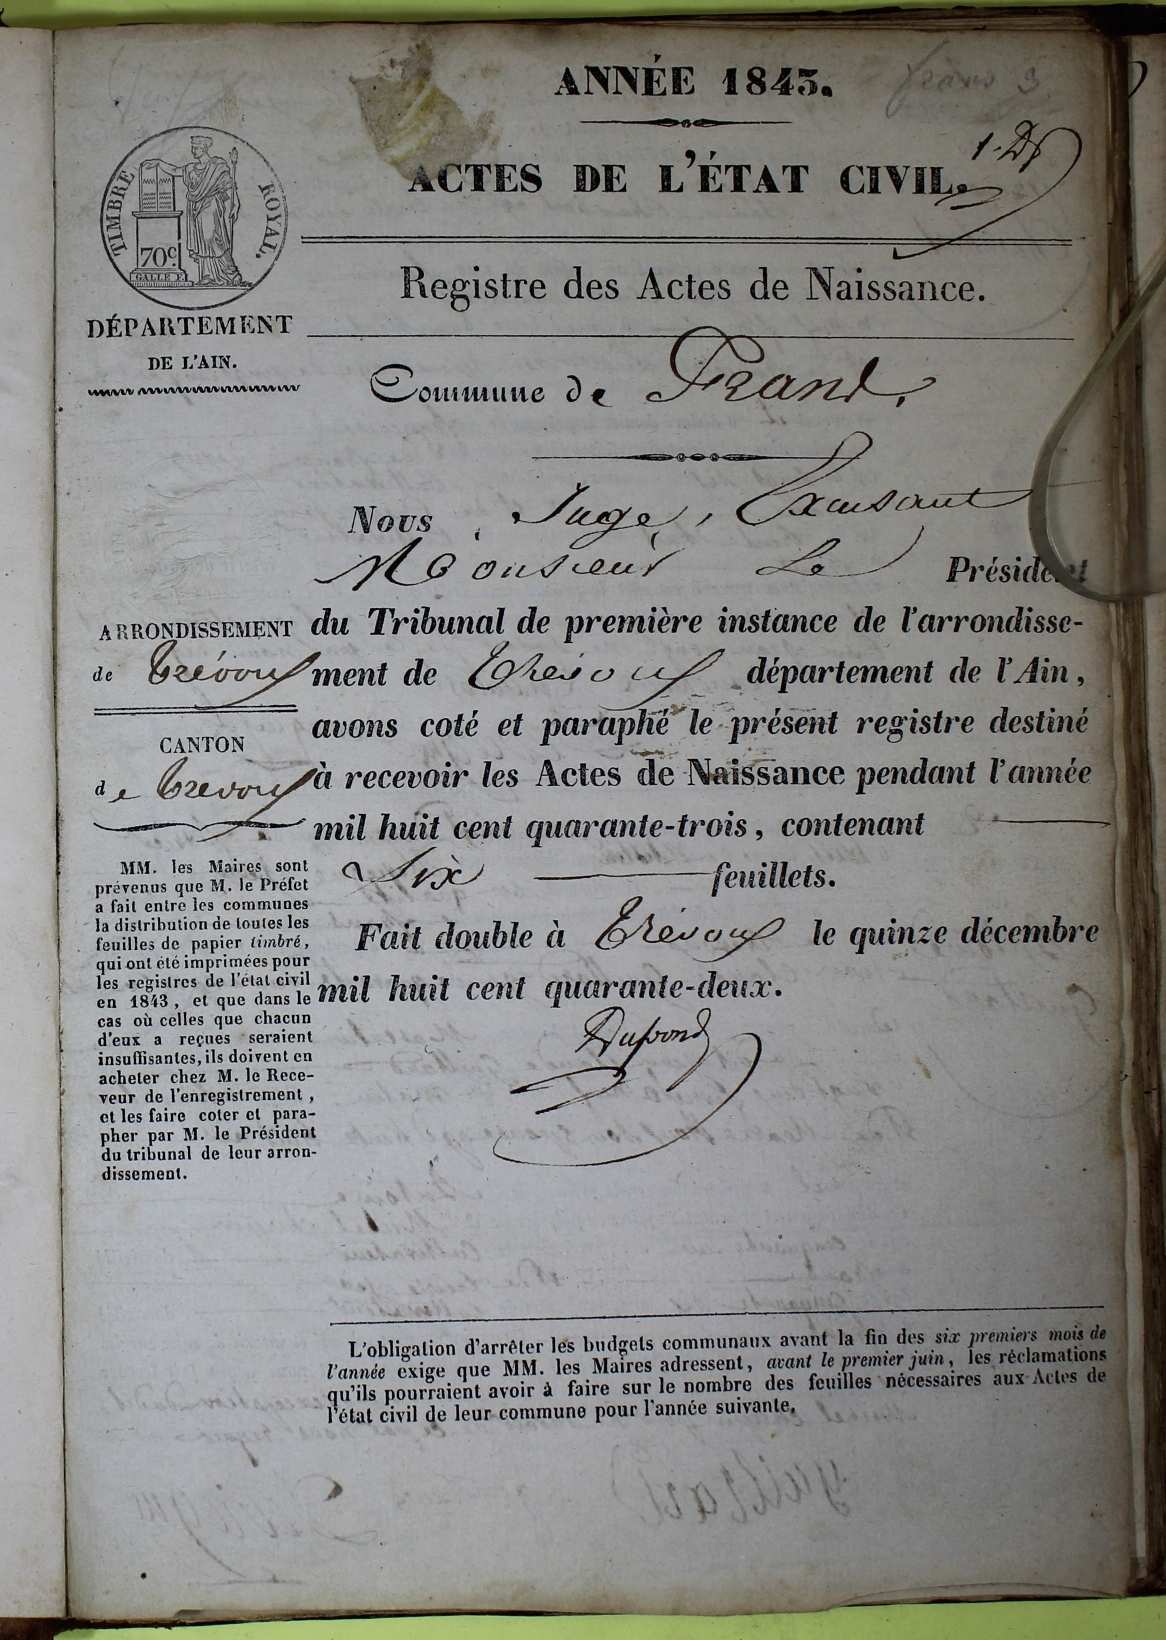 ANNÉE 1843.
frans 3
1. D
ACTES DE L'ÉTAT CIVIL.
TIMBRE ROYAL.
70 c.
GALLE F.
Registre des Actes de Naissance.
DÉPARTEMENT
DE L'AIN.
Commune de Frans.
Nous Juge, Remplaçant
Monsieur Le Président
ARRONDISSEMENT
de Trévoux
CANTON
de Trevoux
MM. les Maires sont
prévenus que M. le Préfet
a fait entre les communes
la distribution de toutes les
feuilles de papier timbré,
qui ont été imprimées pour
les registres de l'état civil
en 1843, et que dans le
cas où celles que chacun
d'eux a reçues seraient
insuffisantes, ils doivent en
acheter chez M. le Rece-
veur de l'enregistrement,
et les faire coter et para-
pher par M. le Président
du tribunal de leur arron-
dissement.
du Tribunal de première instance de l'arrondisse-
ment de Trévoux département de l'Ain,
avons coté et paraphé le présent registre destiné
à recevoir les Actes de Naissance pendant l'année
mil huit cent quarante-trois, contenant
Six feuillets.
Fait double à Trévoux le quinze décembre
mil huit cent quarante-deux.
Dupond
L'obligation d'arrêter les budgets communaux avant la fin des six premiers mois de
l'année exige que MM. les Maires adressent, avant le premier juin, les réclamations
qu'ils pourraient avoir à faire sur le nombre des feuilles nécessaires aux Actes de
l'état civil de leur commune pour l'année suivante.